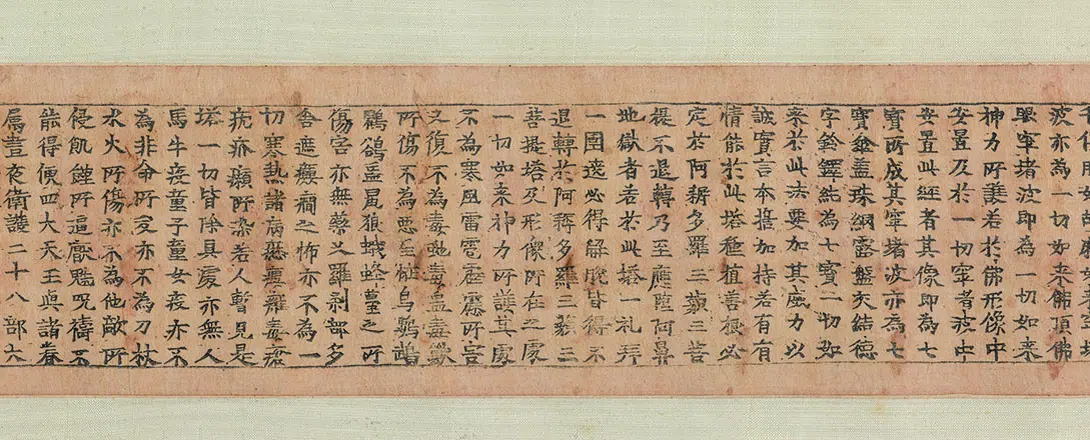 波亦為一切如来佛頂佛
眼窣堵波即為一切如来
神力所護若於佛形像中
安置及於一切窣者波中
安置此經者其像即為七
寶所成其窣堵波亦為七
寶傘盖珠網露盤交結德
字鈴鐸純為七寶一切如
来於此法要加其威力以
誠實言本擔加持若有有
情能於此塔種植善根必
定於阿耨多羅三藐三菩
提不退轉乃至應堕阿鼻
地獄者若於此塔一礼拜
一圍遶必得解脫皆得不
退轉於阿耨多羅三藐三
菩提塔及形像所在之處
一切如来神力所護其處
不為寒風雷雹霹靂所害
又復不為毒虵毒蟲毒獸
所傷不為惡星恠鳥鸚鵡
鸜鵒虽狼蛾蜂蠆之所
傷害亦無藥叉羅剎部多
舍遮癲癇之怖亦不為一
切寒熱諸病瘻癰毒瘡
疣疥癩所染若人暫見是
塔一切皆除其處亦無人
馬牛疫童子童女疫亦不
為非命所夭亦不為刀杖
水火所傷亦不為他敵所
侵飢饉所逼厭魅呪禱不
能得便四大天王與諸眷
属晝夜衛護二十八部大